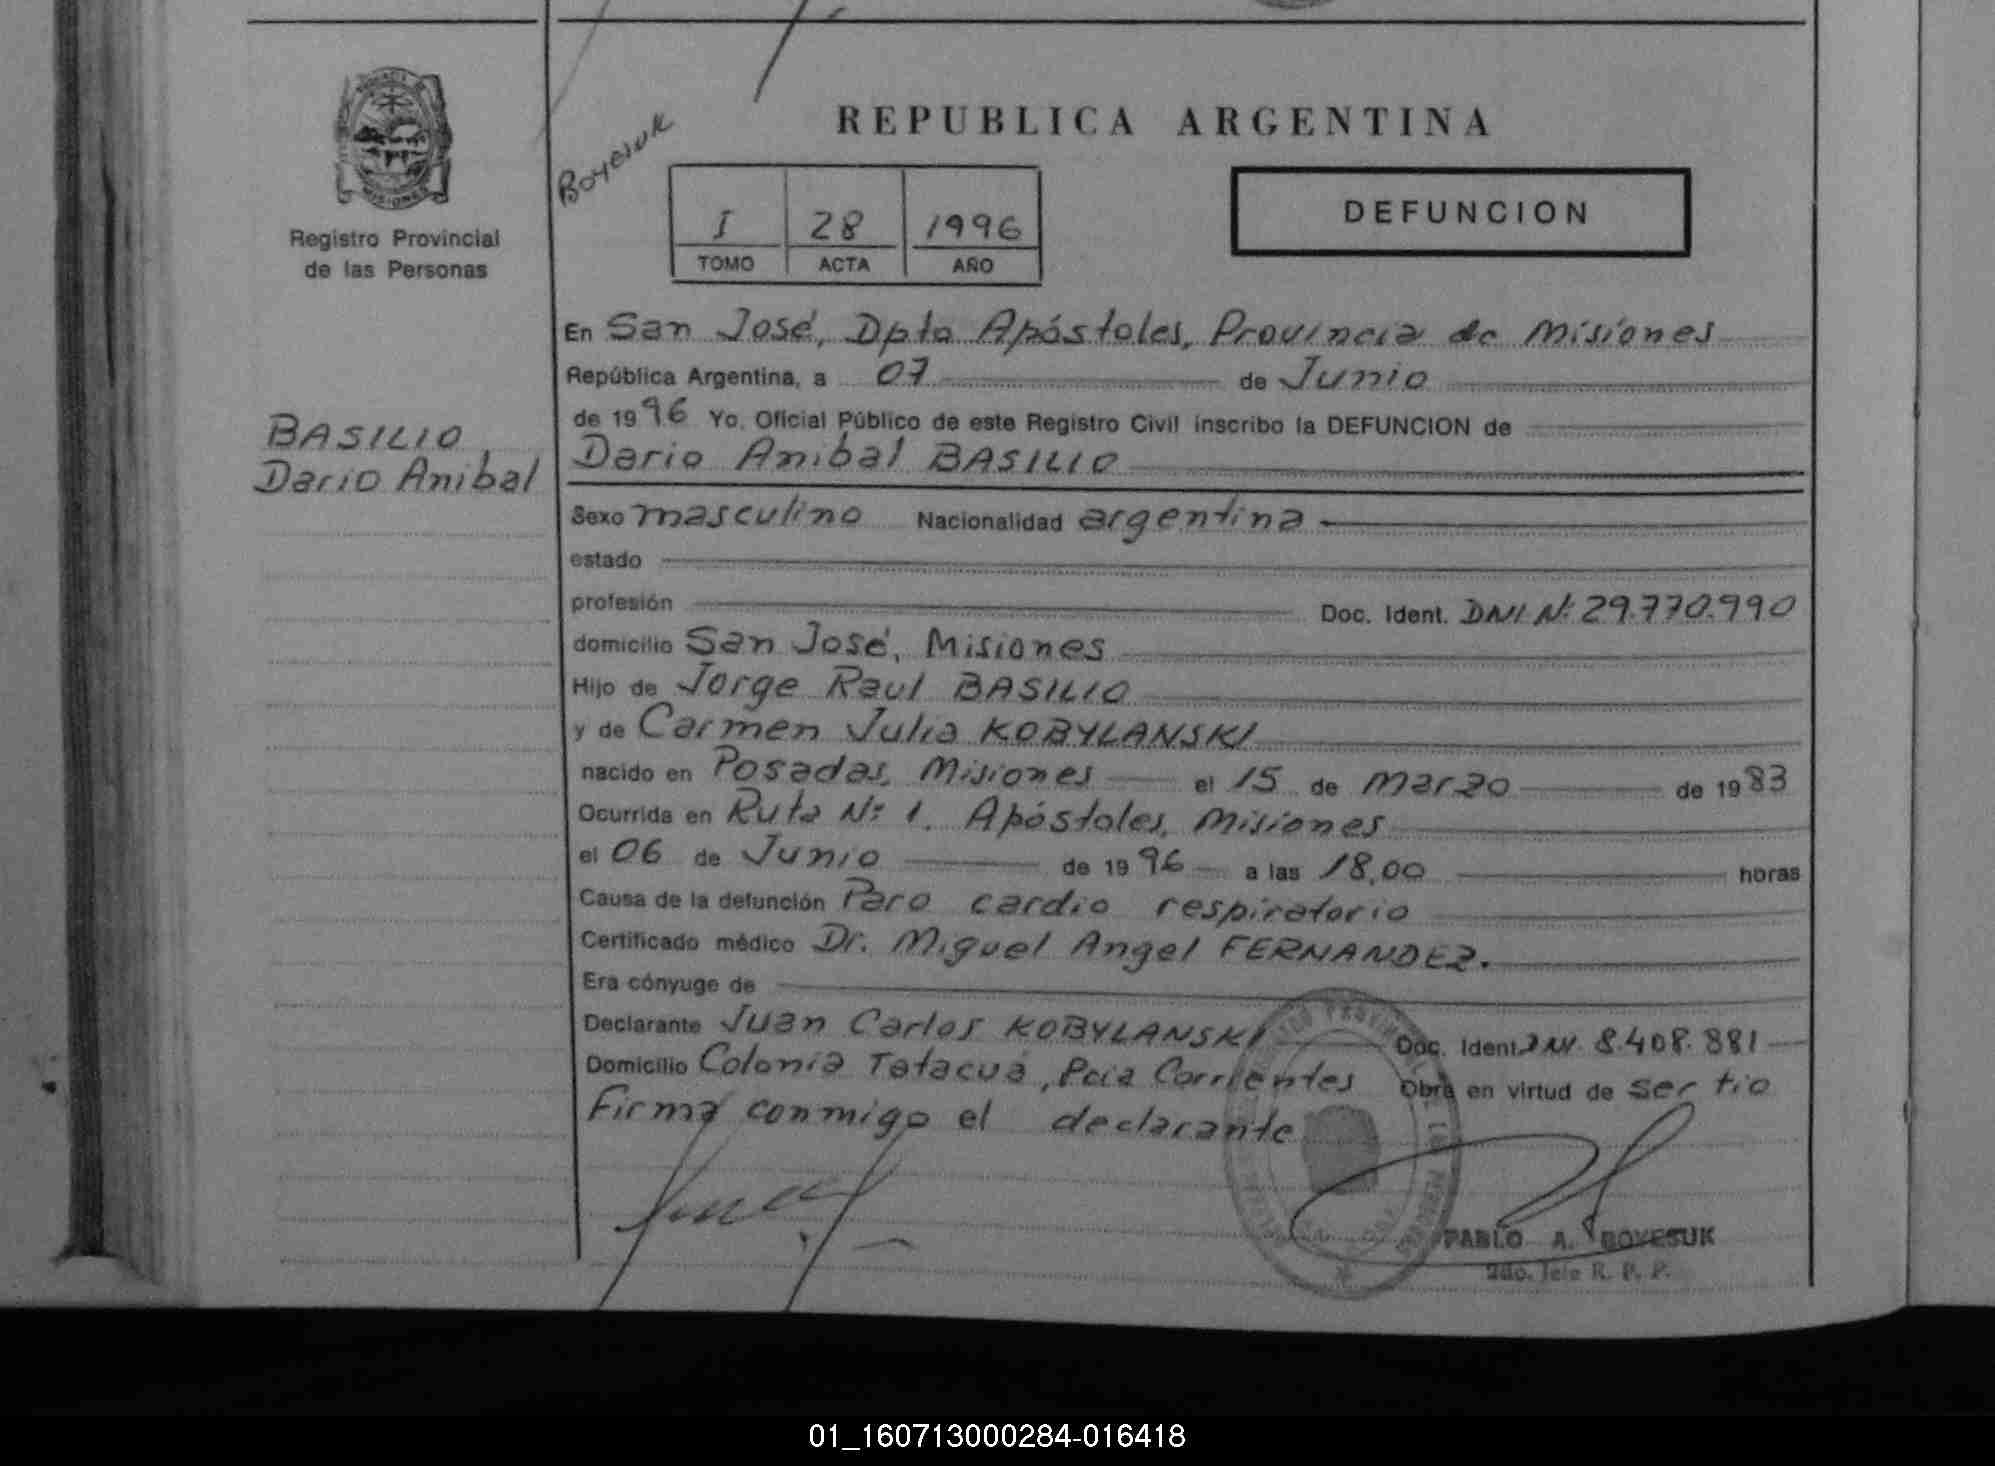 REPUBLICA ARGENTINA
Boyesuk
PROVINCIA DE
MISIONES
Registro Provincial
de las Personas
I 28 1996
TOMO ACTA AÑO
DEFUNCION
En San José, Dpto Apóstoles, Provincia de Misiones
República Argentina, a 07 de Junio
de 1996 Yo, Oficial Público de este Registro Civil inscribo la DEFUNCION de
BASILIO
Dario Anibal
Dario Anibal BASILIO
Sexo masculino Nacionalidad argentina
estado
profesión Doc. Ident. DNI Nº 29.770.990
domicilio San José, Misiones
Hijo de Jorge Raul BASILIO
y de Carmen Julia KOBYLANSKI
nacido en Posadas, Misiones el 15 de Marzo de 1983
Ocurrida en Ruta Nº 1. Apóstoles, Misiones
el 06 de Junio de 1996 a las 18,00 horas
Causa de la defunción Paro cardio respiratorio
Certificado médico Dr. Miguel Angel FERNANDEZ.
Era cónyuge de
Declarante Juan Carlos KOBYLANSKI Doc. Ident. DNI. 8.408.881
Domicilio Colonia Tatacuá, Pcia Corrientes Obra en virtud de ser tio
Firma conmigo el declarante
PABLO A. BOYESUK
2do. Jefe R. P. P.
01_160713000284-016418